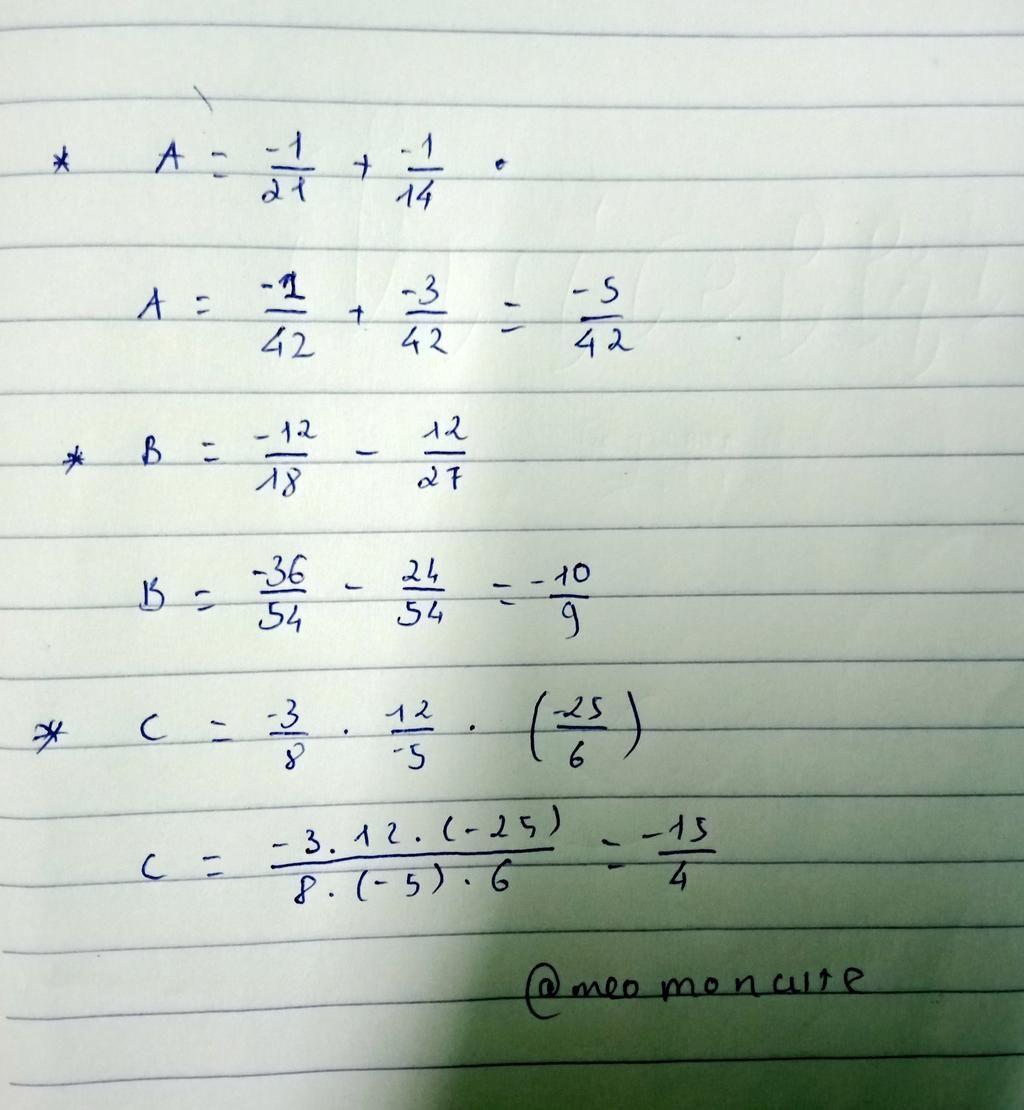 * A = -1/21 + -1/14 .
A = -2/42 + -3/42 = -5/42
* B = -12/18 - 12/27
B = -36/54 - 24/54 = -10/9
* C = -3/8 . 12/-5 . (-25/6)
C = -3.12.(-25)/8.(-5).6 = -15/4
@meo mon cute